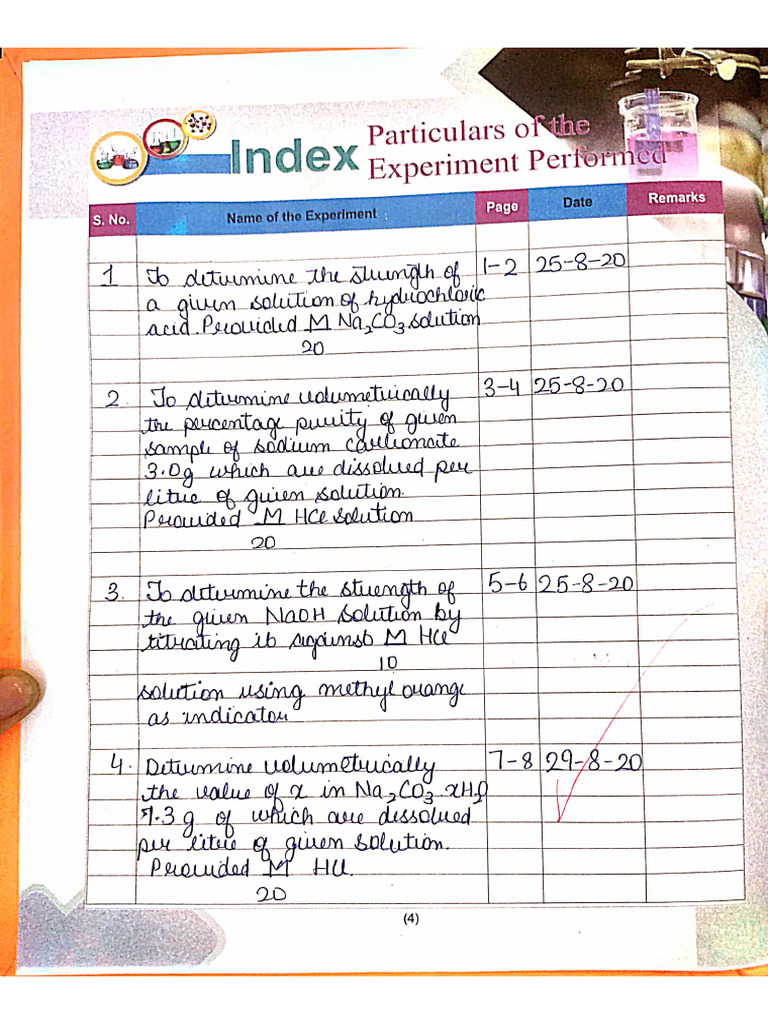 Index
Particulars of the
Experiment Performed
S. No. Name of the Experiment Page Date Remarks
1 To determine the strength of 1-2 25-8-20
a given solution of hydrochloric
acid. Provided M Na₂CO₃ solution
20
2. To determine volumetrically 3-4 25-8-20
the percentage purity of given
sample of sodium carbonate
3.0g which are dissolved per
litre of given solution.
Provided M HCl solution
20
3. To determine the strength of 5-6 25-8-20
the given NaOH solution by
titrating it against M HCl
10
solution using methyl orange
as indicator
4. Determine volumetrically 7-8 29-8-20
the value of x in Na₂CO₃.xH₂O
7.3 g of which are dissolved
per litre of given solution.
Provided M HCl.
20
(4)